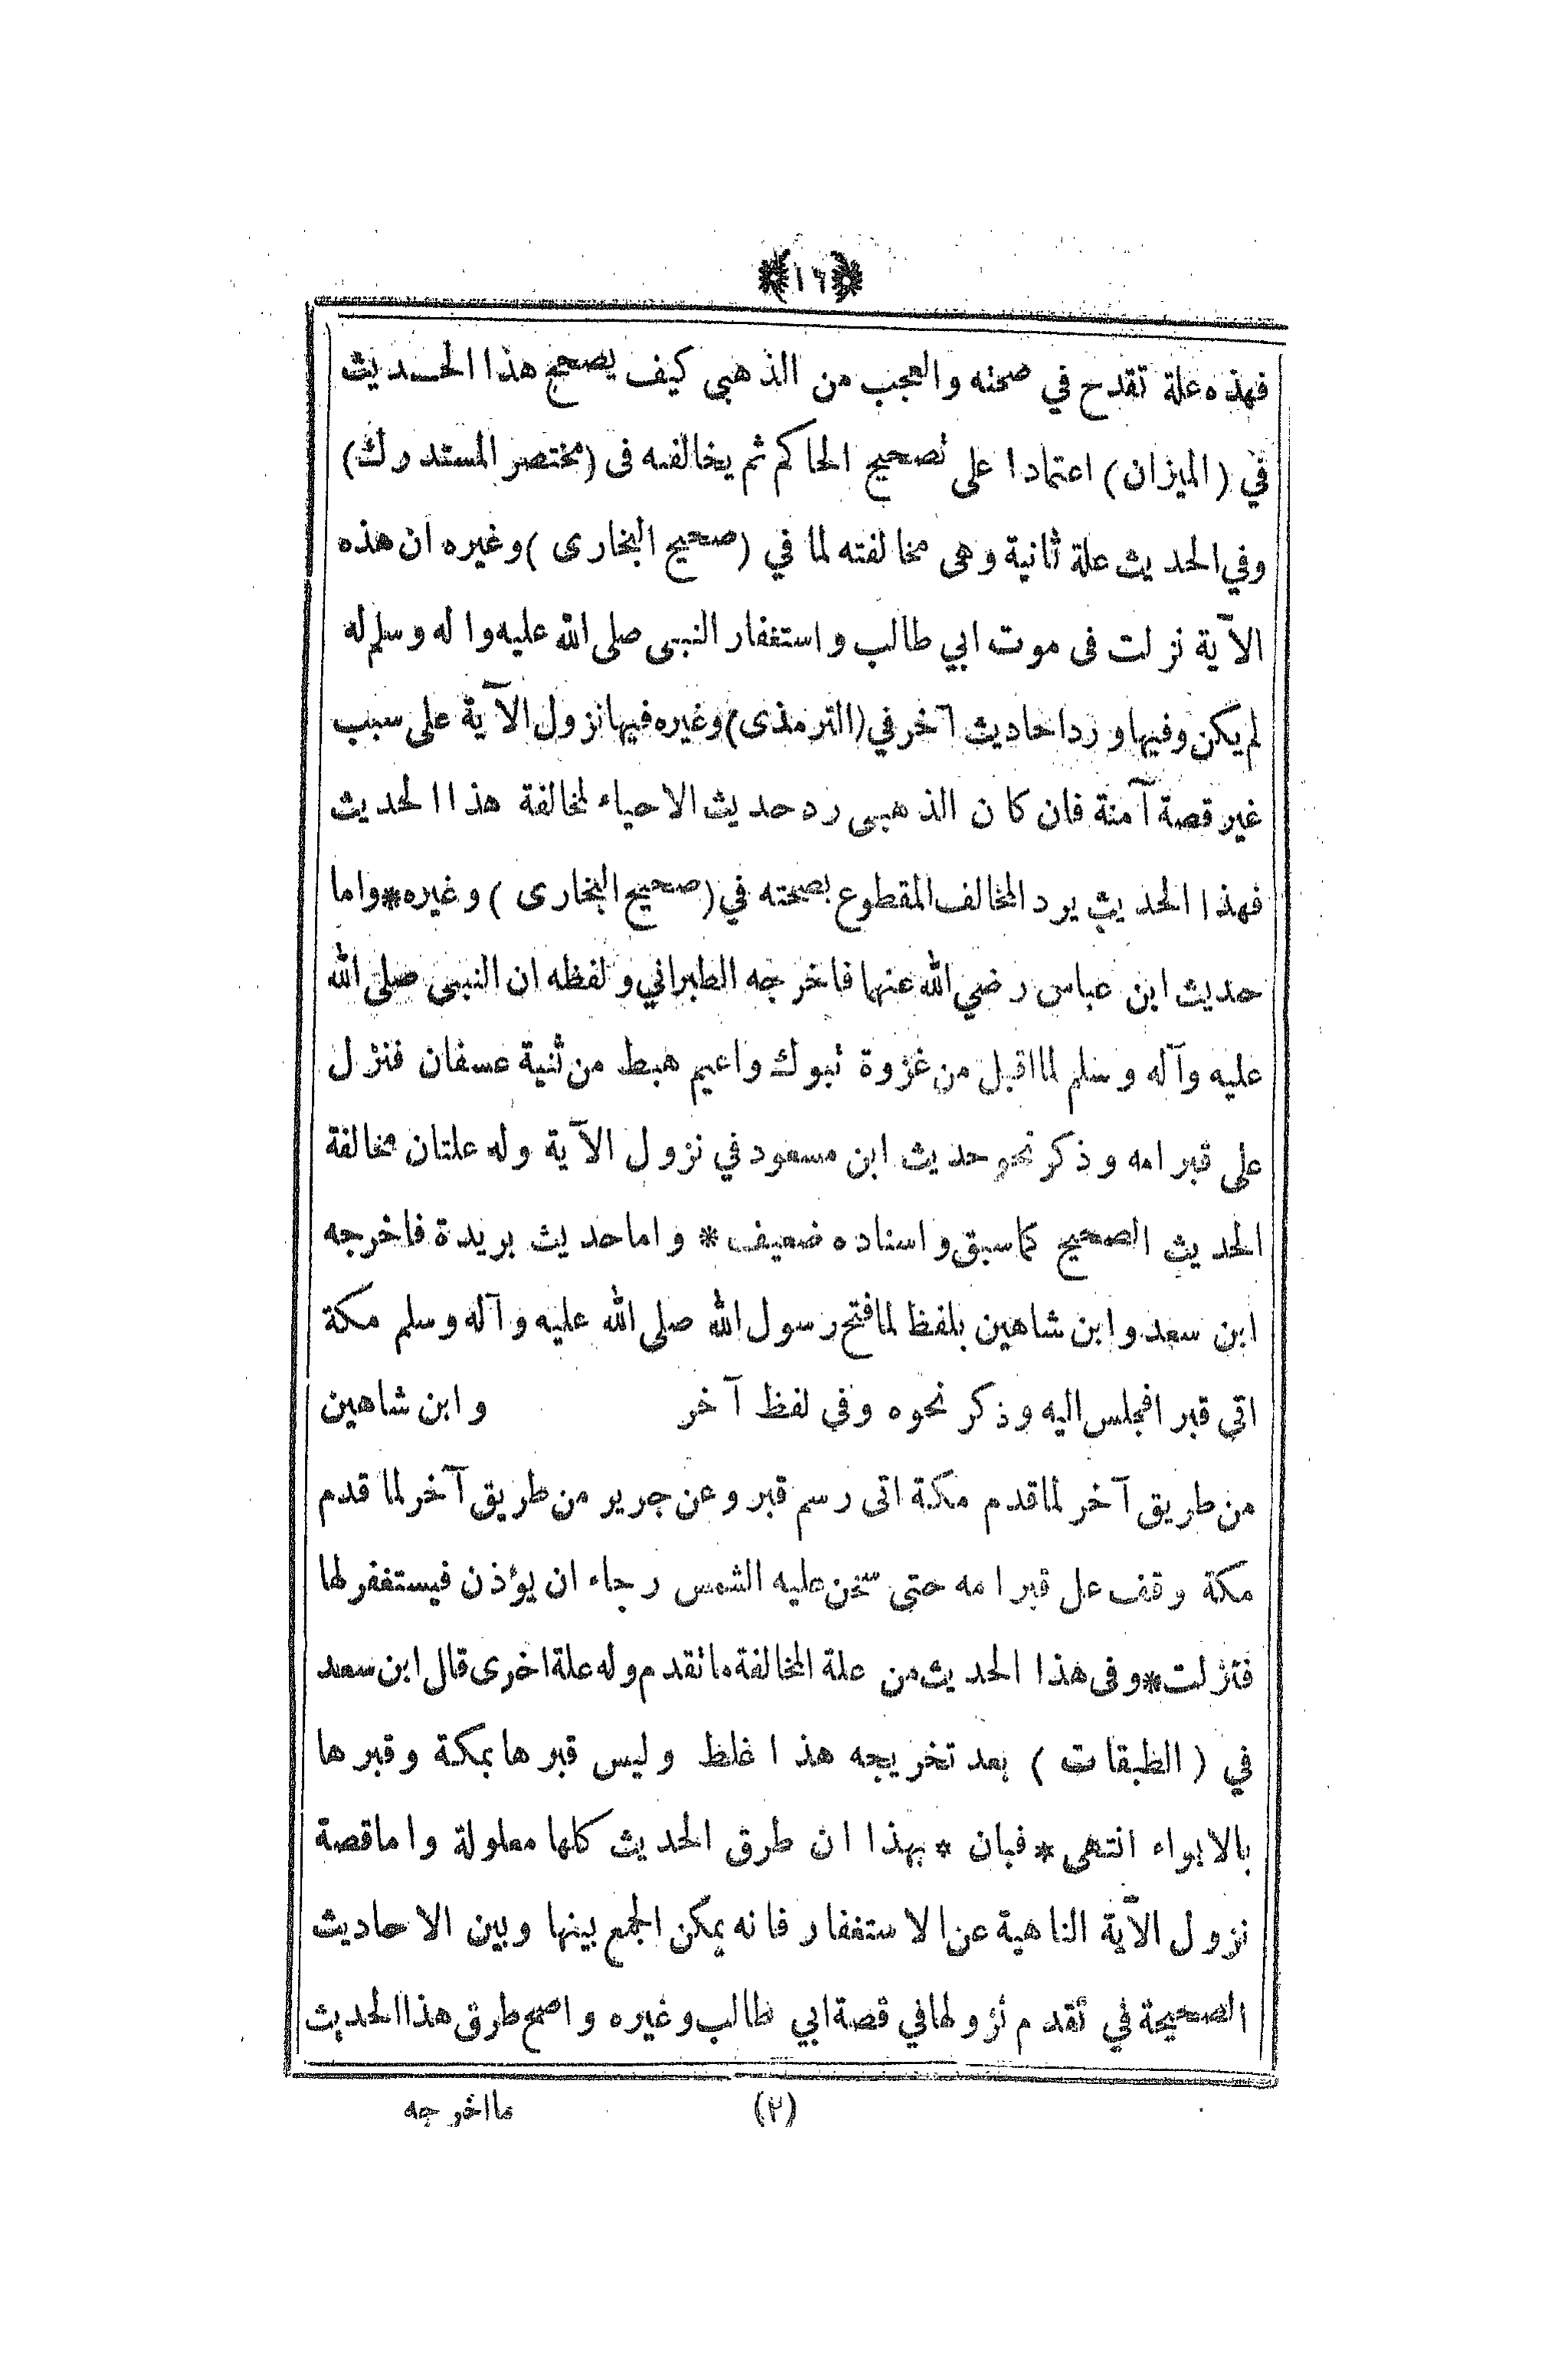 ﴿١٦﴾
فهذه علة تقدح في صحته والعجب من الذهبى كيف يصحح هذا الحديث
في (الميزان) اعتمادا على تصحيح الحاكم ثم يخالفه فى (مختصر المستدرك)
وفي الحديث علة ثانية وهى مخالفته لما في (صحيح البخارى) وغيره ان هذه
الآية نزلت فى موت ابي طالب واستغفار النبى صلى الله عليه واله وسلم له
لم يكن وفيها ورد احاديث آخر في (الترمذى) وغيره فيها نزول الآية على سبب
غير قصة آمنة فان كان الذهبى رد حديث الاحياء لمخالفة هذا الحديث
فهذا الحديث يرد المخالف المقطوع بصحته في (صحيح البخارى) وغيره * واما
حديث ابن عباس رضي الله عنهما فاخرجه الطبراني ولفظه ان النبى صلى الله
عليه وآله وسلم لما اقبل من غزوة تبوك واعيم هبط من ثنية عسفان فنزل
على قبر امه وذكر نحو حديث ابن مسعود في نزول الآية وله علتان مخالفة
الحديث الصحيح كما سبق واسناده ضعيف * واما حديث بريدة فاخرجه
ابن سعد وابن شاهين بلفظ لما فتح رسول الله صلى الله عليه وآله وسلم مكة
اتى قبرا فجلس اليه وذكر نحوه وفي لفظ آخر وابن شاهين
من طريق آخر لما قدم مكة اتى رسم قبر وعن جرير من طريق آخر لما قدم
مكة وقف عل قبر امه حتى سخن عليه الشمس رجاء ان يؤذن فيستغفر لها
فنزلت * وفى هذا الحديث من علة المخالفة ما تقدم وله علة اخرى قال ابن سعد
في (الطبقات) بعد تخريجه هذا غلط وليس قبرها بمكة وقبرها
بالابواء انتهى * فبان * بهذا ان طرق الحديث كلها معلولة واما قصة
نزول الآية الناهية عن الاستغفار فانه يمكن الجمع بينها وبين الاحاديث
الصحيحة في تقدم نزولها في قصة ابي طالب وغيره واصح طرق هذا الحديث
(٢) ما اخرجه